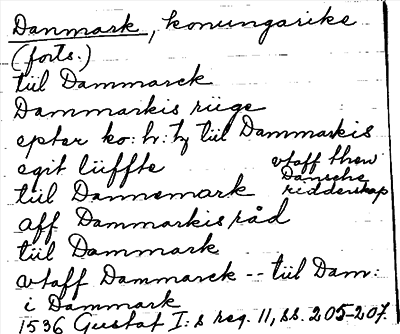 Danmark, konungarike
(forts.)
tiil Dammarck
Dammarkis riige
epter ko: hr: tz tiil Dammarkis
egit liiffte
vtaff thew
Dansche
ridderskap
tiil Dannemark
aff Dammarkis råd
tiil Dammark
vtaff Dammarck -- tiil Dam:
i Dammark
1536 Gustaf I:s reg. 11, ss. 205-207.